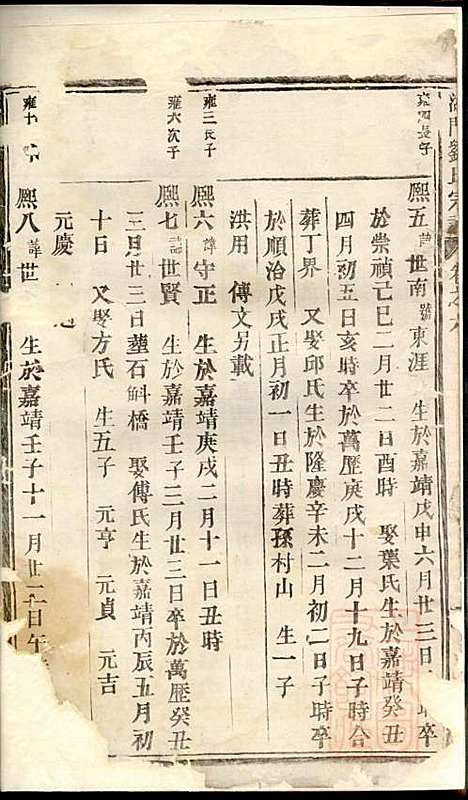 劉氏宗譜
熙五 諱世南 號東涯 生於嘉靖戊申六月廿三日 時卒
於崇禎己巳二月廿二日酉時 娶葉氏生於嘉靖癸丑
四月初五日亥時卒於萬歷庚戌十二月十九日子時合
葬丁界 又娶邱氏生於隆慶辛未二月初二日子時卒
於順治戊戌正月初一日丑時葬孫村山 生一子
洪用 傳文另載
雍三長子
熙六 諱守正 生於嘉靖庚戌二月十一日丑時
雍六次子
熙七 諱世賢 生於嘉靖壬子二月廿三日卒於萬歷癸丑
三月廿三日塟石斛橋 娶傅氏生於嘉靖丙辰五月初
十日 又娶方氏 生五子 元亨 元貞 元吉
元慶
雍十 子
熙八 諱世 生於嘉靖壬子十一月廿二日午